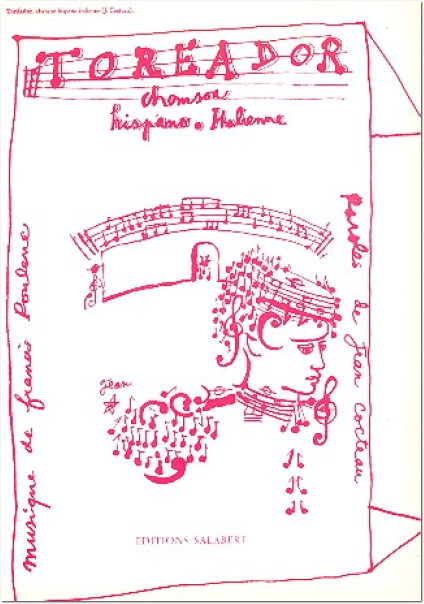 Toréador, chanson hispano-italienne (J. Cocteau).
TOREADOR
chanson
hispano-Italienne
Paroles de Jean Cocteau
musique de francis Poulenc
Jean
EDITIONS SALABERT